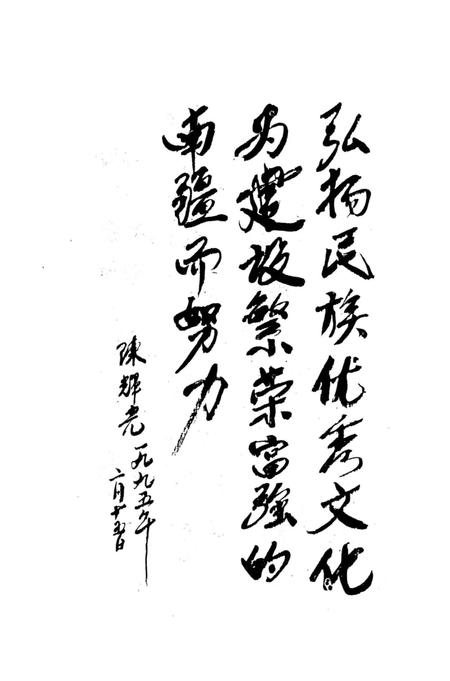 弘扬民族优秀文化
为建设繁荣富强的
南疆而努力
陈辉光一九九五年
六月十五日